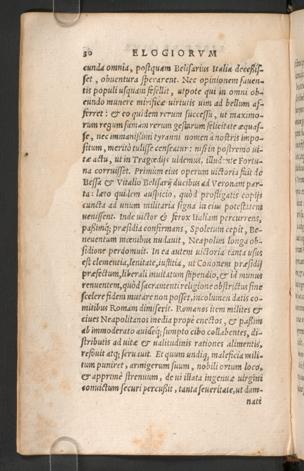 30 ELOGIORVM
cunda omnia, postquam Belisarius Italia decessis-
set, obuentura sperarent. Nec opinionem fauen-
tis populi usquam fefellit, utpote qui in omni ob
eundo munere mirifice uirtutis uim ad bellum af-
ferret: & eo quidem rerum successu, ut maximo-
rum regum famam rerum gestarum felicitate æquas-
se, nec immanissimi tyranni nomen à nostris impo-
situm, meritò tulisse censeatur: nisi in postremo ui-
tæ actu, ut in Tragœdijs uidemus, illud ne Fortu-
na corruisset. Primum eius operum uictoria fuit de
Bessa & Vitalio Belisarij ducibus ad Veronam par-
ta: læto quidem auspicio, quòd profligatis copijs
cuncta ad unum militaria signa in eius potestatem
uenissent. Inde uictor & ferox Italiam percurrens,
passimq; præsidia confirmans, Spoletum cepit, Be-
neuentum mœnibus nudauit, Neapolim longa ob-
sidione perdomuit. In ea autem uictoria tanta usus
est clementia, lenitate, iustitia, ut Cononem præsidij
præfectum, liberali inuitatum stipendio, & id munus
renuentem, quòd sacramenti religione obstrictus sine
scelere fidem mutare non posset, incolumem datis co-
mitibus Romam dimiserit. Romanos item milites &
ciues Neapolitanos inedia propè enectos, & passim
ab immoderato auideq; sumpto cibo collabentes, di-
stributis ad uitæ & ualitudinis rationes alimentis,
refouit atq; seruauit. Et quum undiq; maleficia mili-
tum puniret, armigerum suum, nobili ortum loco,
& apprimè strenuum, de ui illata ingenuæ uirgini
conuictum securi percussit, tanta seueritate, ut dam-
nati